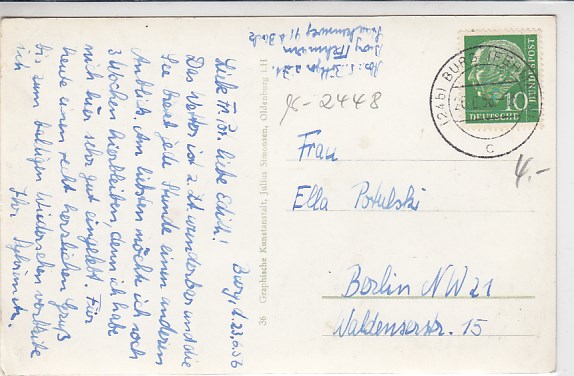 Burg, d. 23.6.56
Liebe Fr. Pr. liebe Edith!
Das Wetter ist z. Zt. wunderbar und die
See bietet jede Stunde einen anderen
Anblick. Am liebsten möchte ich noch
3 Wochen hierbleiben, denn ich habe
mich hier sehr gut eingelebt. Für
heute einen recht herzlichen Gruß
bis zum baldigen Wiedersehen
Ihr
Burg / Fehmarn
36 Graphische Kunstanstalt, Julius Simonsen, Oldenburg i.H
8-2448
(24b) BURG (FEHM
c
10
DEUTSCHE
BUNDESPOST
4.-
Frau
Ella Postulski
Berlin NW 21
Waldenserstr. 15